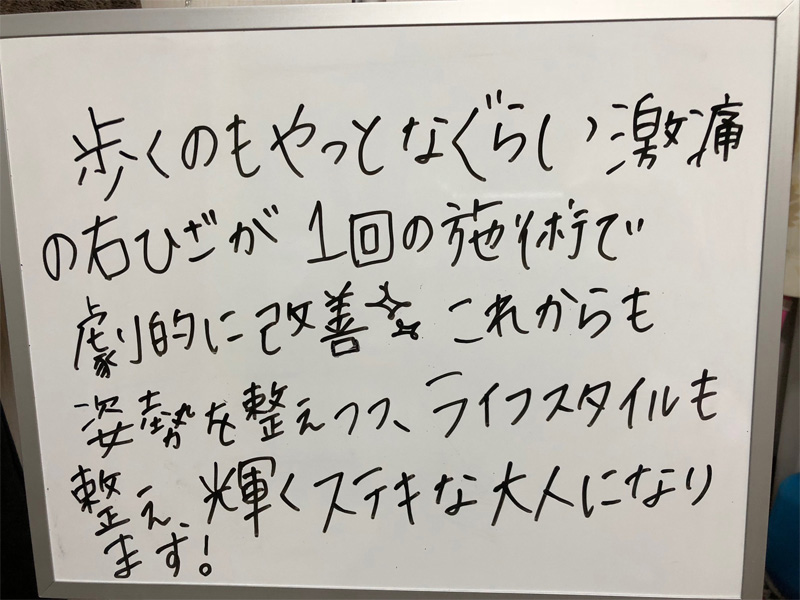 歩くのもやっとなぐらい激痛
の右ひざが1回の施術で
劇的に改善✨これからも
姿勢を整えつつ、ライフスタイルも
整え、輝くステキな大人になり
ます!